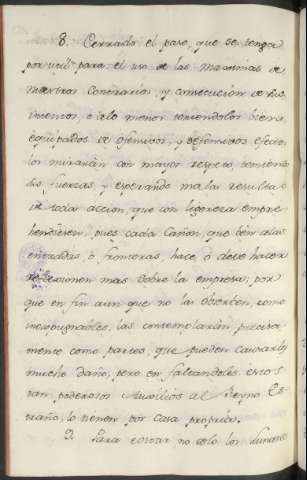 8. Cerrado el paso, que se tenga
por util para el uso de las maximas de
nuestros Contrarios, y consecucion de sus
intentos, ò alo menos teniendolos bien
equipados de ofensivos, y defensivos efectos
los mirarán con mayor respeto, temiendo
sus fuerzas, y esperando malas resultas
de toda accion, que con ligereza empre
hendieren, pues cada Cañon, que ven alas
entradas, ò fronteras, hace, ò deve hacer
reflexionen mas sobre la empresa; por
que en fin aun que no las observen, como
inexpugnables, las contemplarán precisa
mente como partes, que pueden causarles
mucho daño, pero en faltandoles estos
tan poderosos Auxilios al Reyno Es
traño, lo tienen por casa propria.
9. Para evitar no solo los